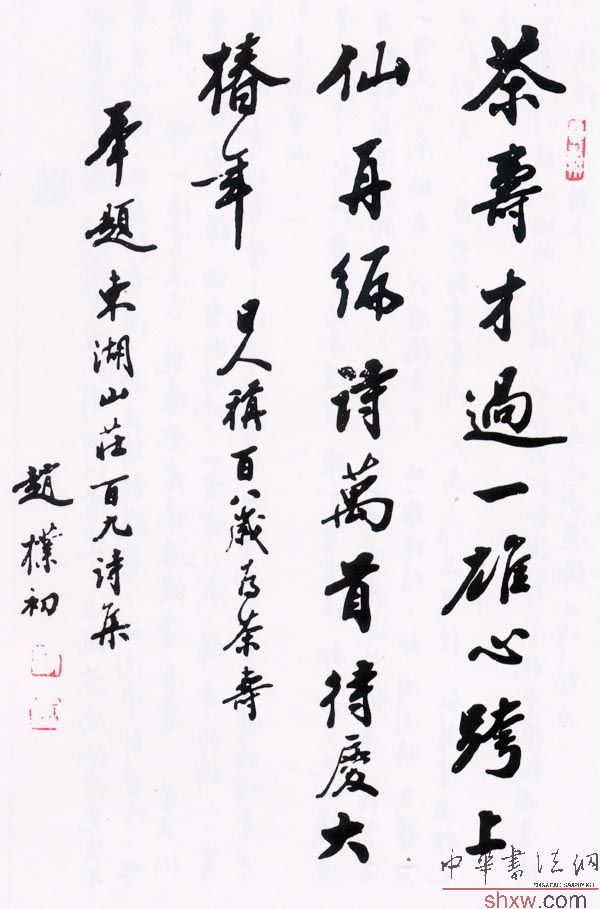 茶壽才過一雄心跨上
仙再編詩萬首待慶大
椿年
日人稱百八歲為茶壽
奉題東湖山莊百九詩集
趙樸初
中華書法網
shxw.com